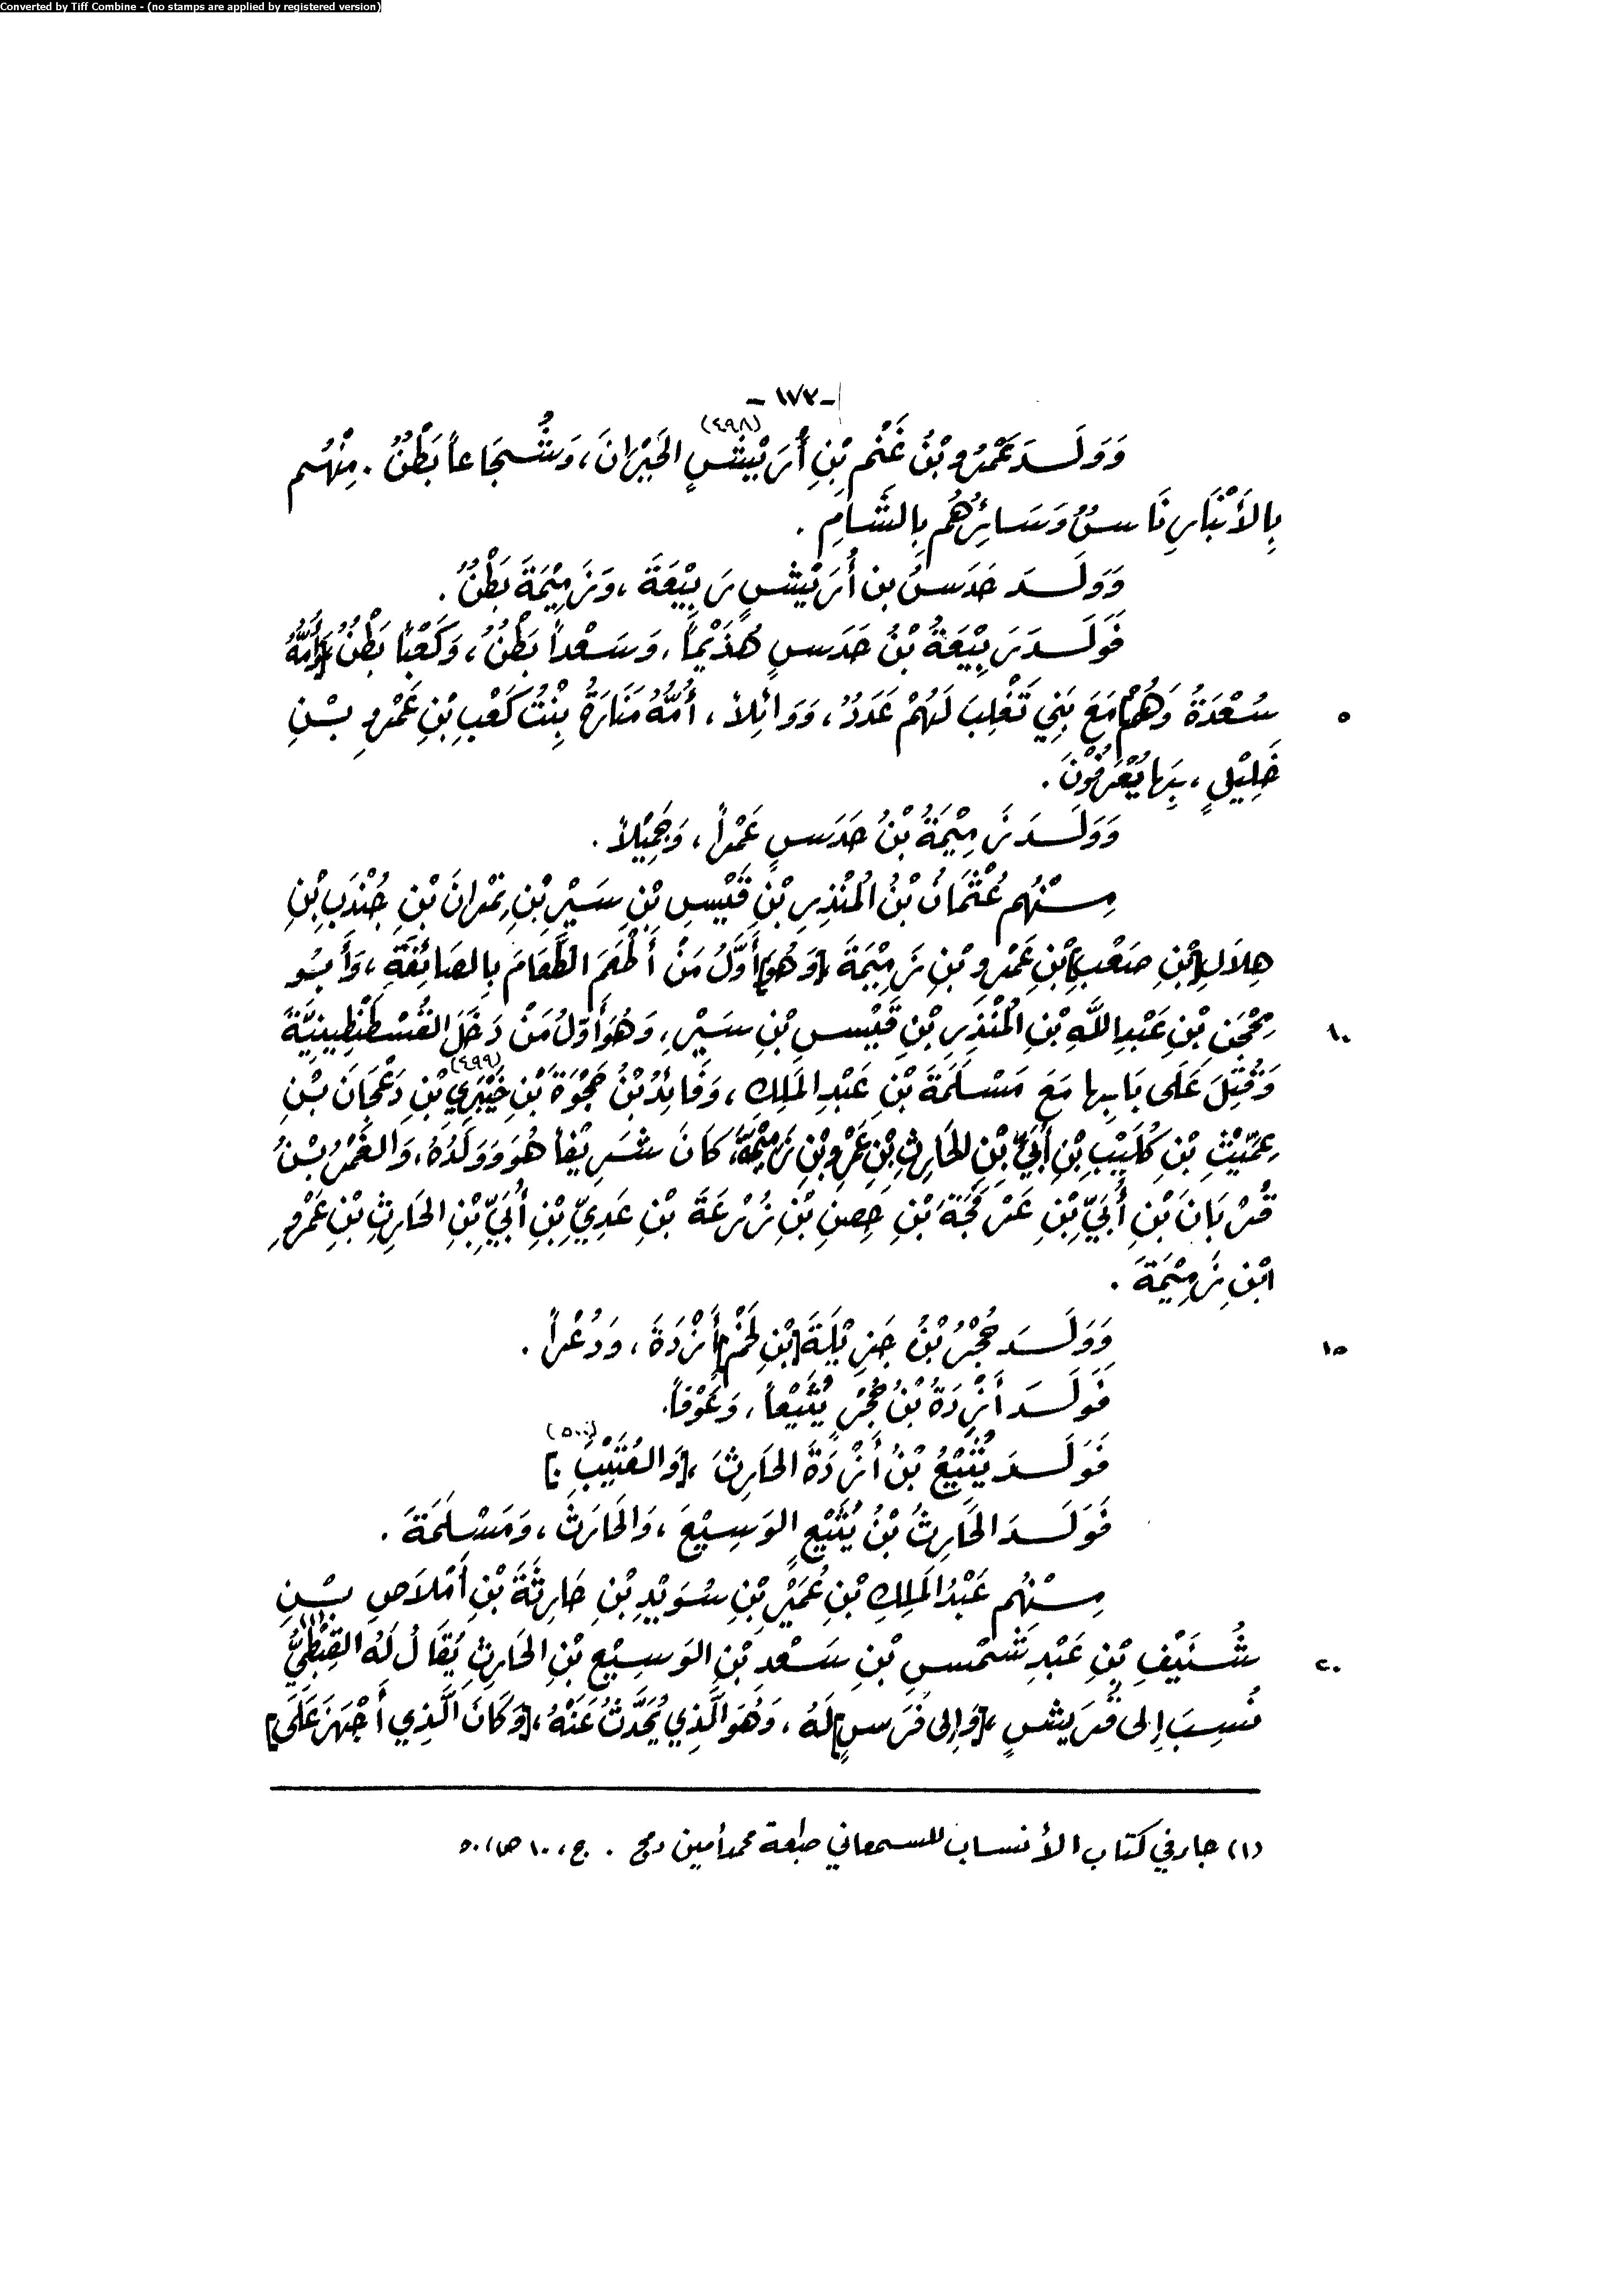 Converted by Tiff Combine - (no stamps are applied by registered version)
-١٧٢-
(٤٩٨)
وَوَلَدَ عَمْرُو بْنُ غَنْمِ بْنِ أُرَيْشٍ الحَيْرَانَ، وَشُجَاعاً بَطْنٌ. مِنْهُم
بِالأَنْبَارِ نَاسٌ وَسَائِرُهُم بِالشَّامِ.
وَوَلَدَ حَدَسُ بن أُرَيْشٍ رَبِيْعَةَ، وَزَمِيْمَةَ بَطْنٌ.
فَوَلَدَ رَبِيْعَةُ بْنُ حَدَسٍ هُذَيْماً، وَسَعْداً بَطْنٌ، وَكَعْباً بَطْنٌ [وَأُمُّهُ
٥ سُعْدَةُ وَهُمْ] مَعَ بَنِي تَغْلِبَ لَهُمْ عَدَدٌ، وَوَائِلاً، أُمُّهُ مَنَارَةُ بِنْتُ كَعْبِ بْنِ عَمْرِو بْنِ
خَلِيْلٍ، بِهَا يُعْرَفُوْنَ.
وَوَلَدَ زَمِيْمَةُ بْنُ حَدَسٍ عَمْراً، وَجَمِيْلاً.
مِنْهُم عُثْمَانُ بْنُ المُنْذِرِ بْنِ قَيْسِ بْنِ سَيْرِ بْنِ نِمْرَانَ بْنِ جُنْدَبِ بْنِ
هِلَالِ [بْنِ صَعْبِ] بْنِ عَمْرِو بْنِ زَمِيْمَةَ [وَهُوَ] أَوَّلُ مَنْ أَطْعَمَ الطَّعَامَ بِالصَائِفَةِ، وَأَبُو
١٠ مِحْجَنِ بْنِ عَبْدِ اللَّهِ بْنِ المُنْذِرِ بْنِ قَيْسِ بْنِ سَيْرِ، وَهُوَ أَوَّلُ مَنْ دَخَلَ القُسْطَنْطِينِيَّةَ
(٤٩٩)
وَقُتِلَ عَلَى بَابِهَا مَعَ مَسْلَمَةَ بْنِ عَبْدِ المَلِكِ، وَفَائِدُ بْنُ حَجْوَةَ بْنِ خَيْبَرِي بْنِ دَعْجَانَ بْنِ
عِمِّيْثِ بْنِ كُلَيْبِ بْنِ أُبَيِّ بْنِ الحَارِثِ بْنِ عَمْرِو بْنِ زَمِيْمَةَ، كَانَ شَرِيْفاً هُوَ وَوَلَدُهُ، وَالغَمْرُ بْنُ
قُرْبَانَ بْنِ أُبَيِّ بْنِ عَرْفَجَةَ بْنِ حِصنِ بْنِ زُرْعَةَ بْنِ عَدِيِّ بْنِ أُبَيِّ بْنِ الحَارِثِ بْنِ عَمْرِو
ابْنِ زَمِيْمَةَ.
١٥ وَوَلَدَ حُجْرُ بْنُ جَزِيْلَةَ [بْنِ لَخْمٍ] أَزْدَةَ، وَدُعْراً.
فَوَلَدَ أَزْدَةُ بْنُ حُجْرٍ يُثَيْعاً، وَعَوْفاً.
(٥٠٠)
فَوَلَدَ يُثَيْعُ بْنُ أَزْدَةَ الحَارِثَ، [وَالعُتَيْبَ.]
فَوَلَدَ الحَارِثُ بْنُ يُثَيْعٍ الوَسِيْعَ، وَالحَارِثَ، وَمَسْلَمَةَ.
مِنْهُم عَبْدُ المَلِكِ بْنِ عُمَيْرِ بْنِ سُوَيْدِ بْنِ حَارِثَةَ بْنِ أَمْلَاصِ بْنِ
٢٠ شُنَيْفِ بْنِ عَبْدِ شَمْسِ بْنِ سَعْدِ بْنِ الوَسِيْعِ بْنِ الحَارِثِ يُقَالُ لَهُ القِبْطِيُّ (١)
نُسِبَ إِلى قُرَيشٍ، [وَإِلى فَرَسٍ] لَهُ، وَهُوَ الَّذِي يُحَدَّثُ عَنْهُ، [وَكَانَ الَّذِي أَجْهَزَ عَلَى]
(١) جاء في كتاب الأنساب للسمعاني طبعة محمد أمين دمج. ج، ١٠ ص،